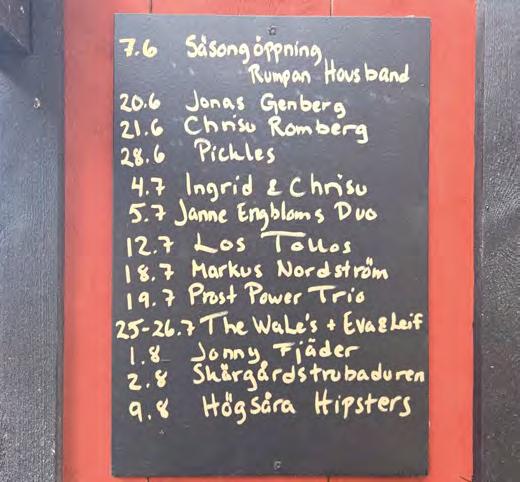 7.6 Säsongöppning
Rumpan Housband
20.6 Jonas Genberg
21.6 Chrisu Romberg
28.6 Pickles
4.7 Ingrid & Chrisu
5.7 Janne Engbloms Duo
12.7 Los Tollos
18.7 Markus Nordström
19.7 Prost Power Trio
25-26.7 The Wale's + Eva & Leif
1.8 Jonny Fjäder
2.8 Skärgårdstrubaduren
9.8 Högsåra Hipsters